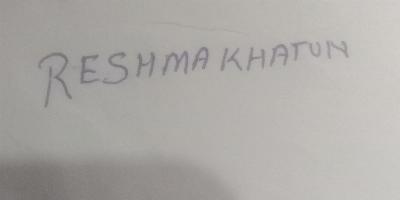 RESHMA KHATUN